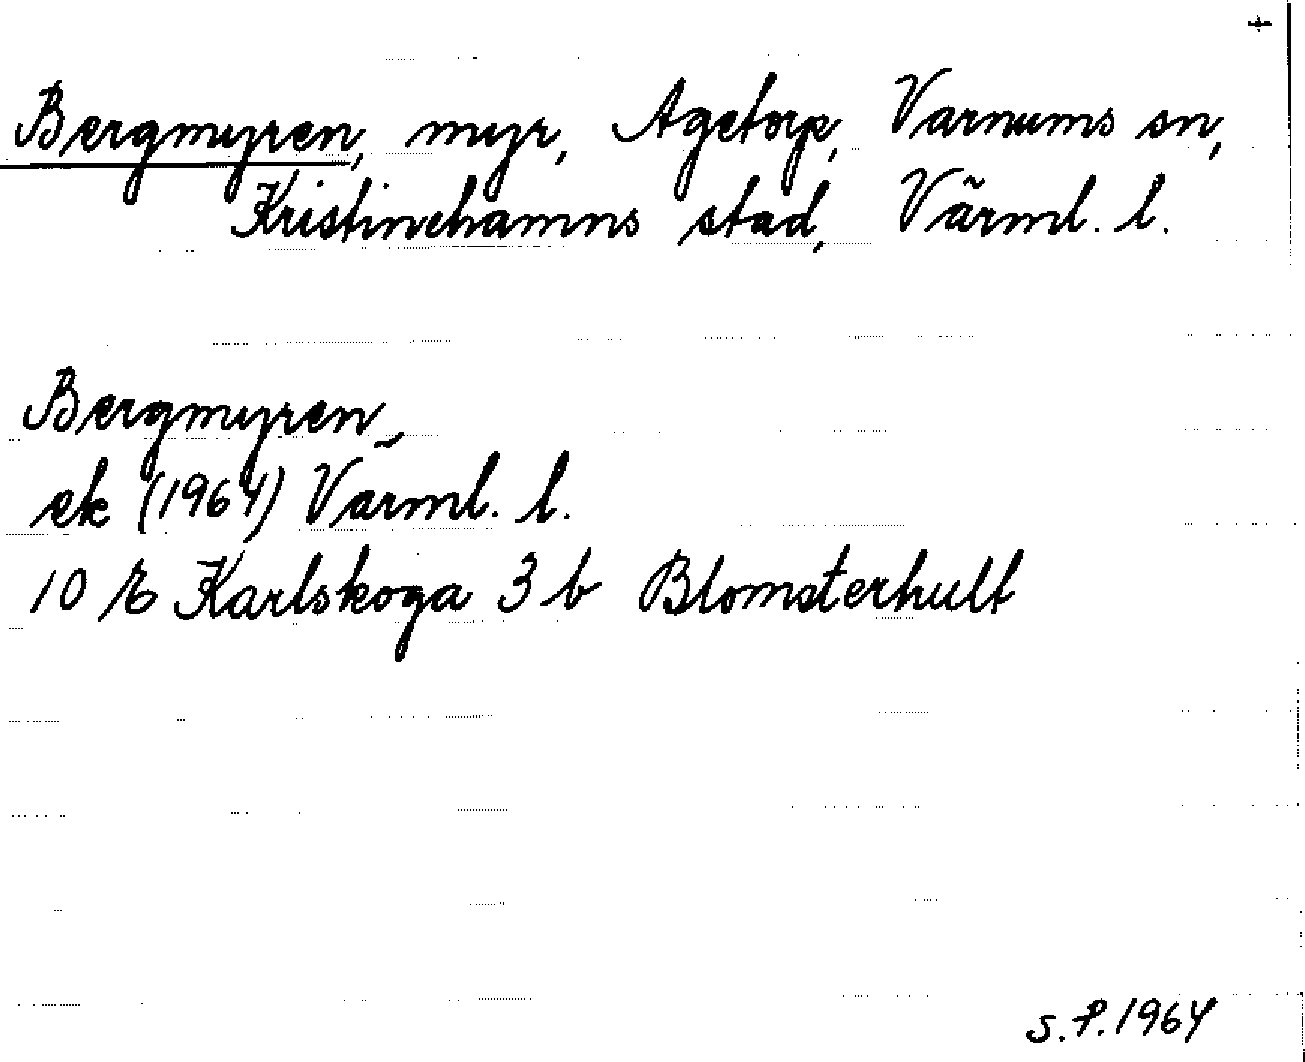 Bergmyren, myr, Agetorp, Varnums sn,
Kristinehamns stad, Värml. l.
Bergmyren,
ek (1964) Värml. l.
10 E Karlskoga 3 b Blomsterhult
S.P. 1964